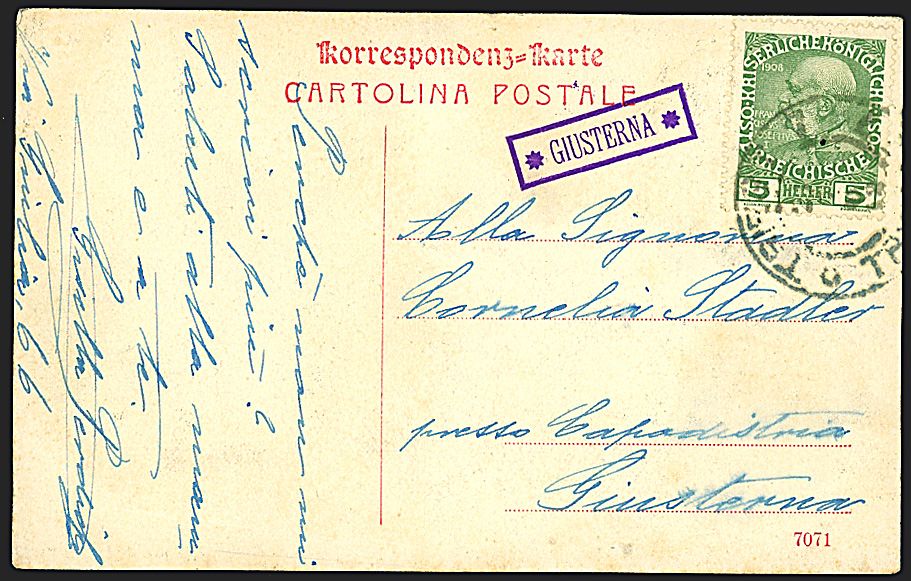 Korrespondenz=Karte
CARTOLINA POSTALE
GIUSTERNA
KAISERLICHE KÖNIGLICHE
ÖSTERREICHISCHE
1908
5 HELLER 5
TRIEST
Alla Signorina
Cornelia Stadler
presso Capodistria
Giusterna
7071
Perchè non mi
scrivi più?
Saluti alla mam
ma e a te.
Via Giulia, 66